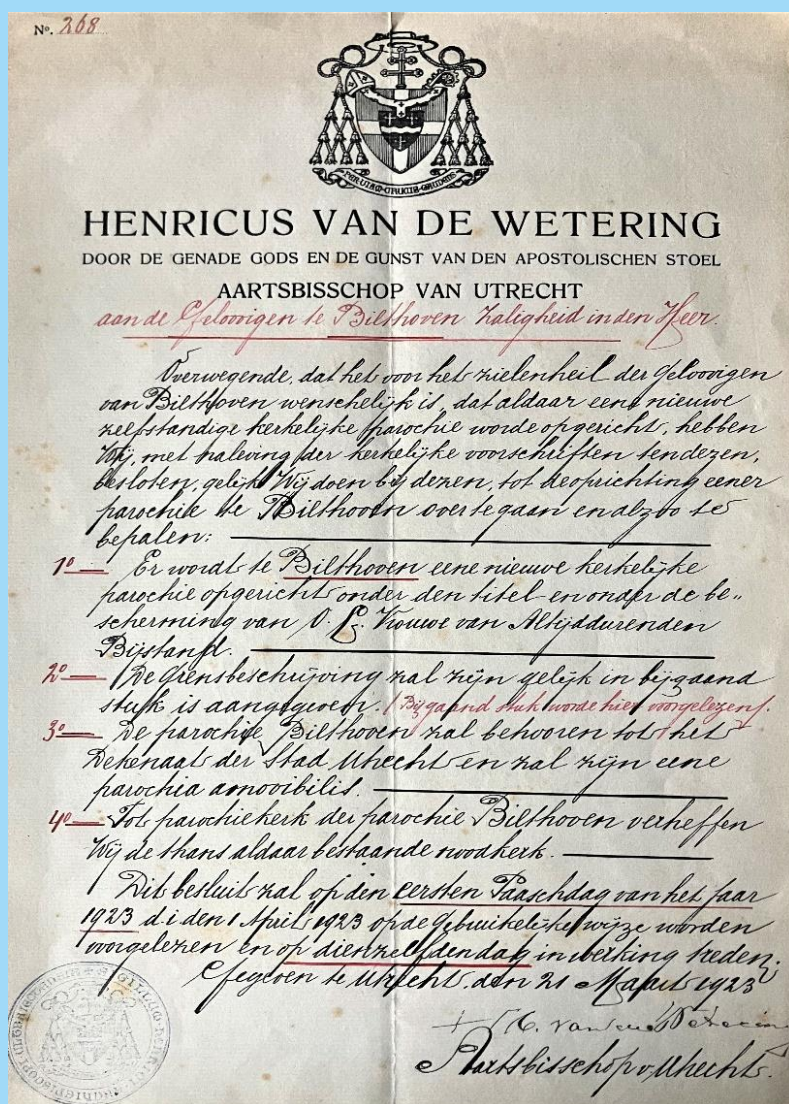 No. 268
PER VIAM CRUCIS GAUDENS
HENRICUS VAN DE WETERING
DOOR DE GENADE GODS EN DE GUNST VAN DEN APOSTOLISCHEN STOEL
AARTSBISSCHOP VAN UTRECHT
aan de Geloovigen te Bilthoven Zaligheid in den Heer.
Overwegende, dat het voor het zielenheil der Geloovigen
van Bilthoven wenschelijk is, dat aldaar eene nieuwe
zelfstandige kerkelijke parochie worde opgericht, hebben
Wij, met naleving der kerkelijke voorschriften ten dezen,
besloten, gelijk Wij doen bij dezen, tot de oprichting eener
parochie te Bilthoven over te gaan en alzoo te
bepalen:
1o Er wordt te Bilthoven eene nieuwe kerkelijke
parochie opgericht onder den titel en onder de be-
scherming van O. L. Vrouwe van Altijddurenden
Bijstand.
2o De Grensbeschrijving zal zijn gelijk in bijgaand
stuk is aangegeven. (Bijgaand stuk worde hier voorgelezen).
3o De parochie Bilthoven zal behooren tot het
Dekenaat der Stad Utrecht en zal zijn eene
parochia amovibilis.
4o Tot parochiekerk der parochie Bilthoven verheffen
Wij de thans aldaar bestaande noodkerk.
Dit besluit zal op den eersten Paaschdag van het jaar
1923 d.i den 1 April 1923 op de Gebruikelijke wijze worden
voorgelezen en op dienzelfden dag in werking treden.
Gegeven te Utrecht, den 21 Maart 1923
+ H. van de Wetering
Aartsbisschop v. Utrecht.